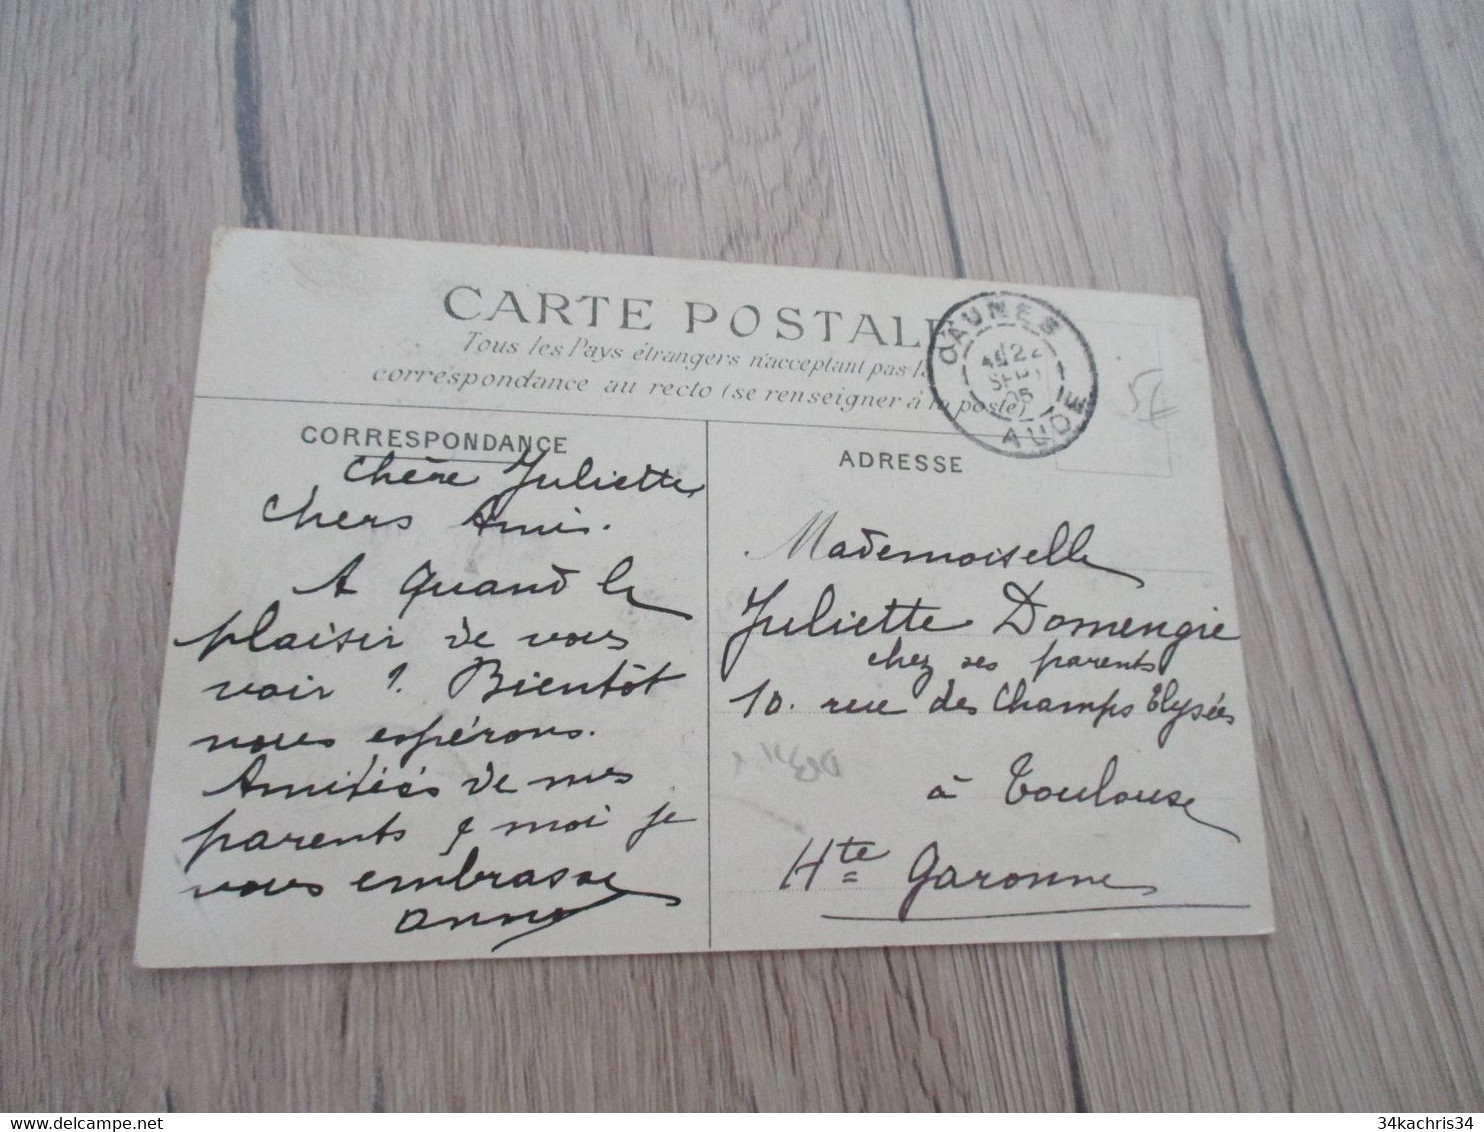 CARTE POSTALE
Tous les Pays étrangers n'acceptant pas la
correspondance au recto (se renseigner à la poste)
CAUNES
SEPT
05
AUDE
5€
CORRESPONDANCE
Chère Juliette,
Chers Amis.
A quand le
plaisir de vous
voir ? Bientôt
nous espérons.
Amitiés de mes
parents & moi je
vous embrasse
Anna
ADRESSE
Mademoiselle
Juliette Domengie
chez ses parents
10. rue des Champs Elysées
à Toulouse
Hte Garonne
34kachris34